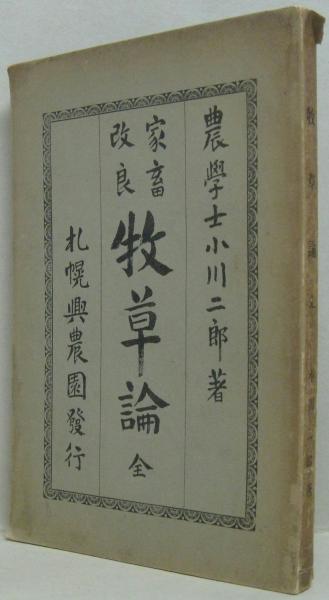 農學士小川二郎著
家畜
改良
牧草論 全
札幌興農園發行
牧草論